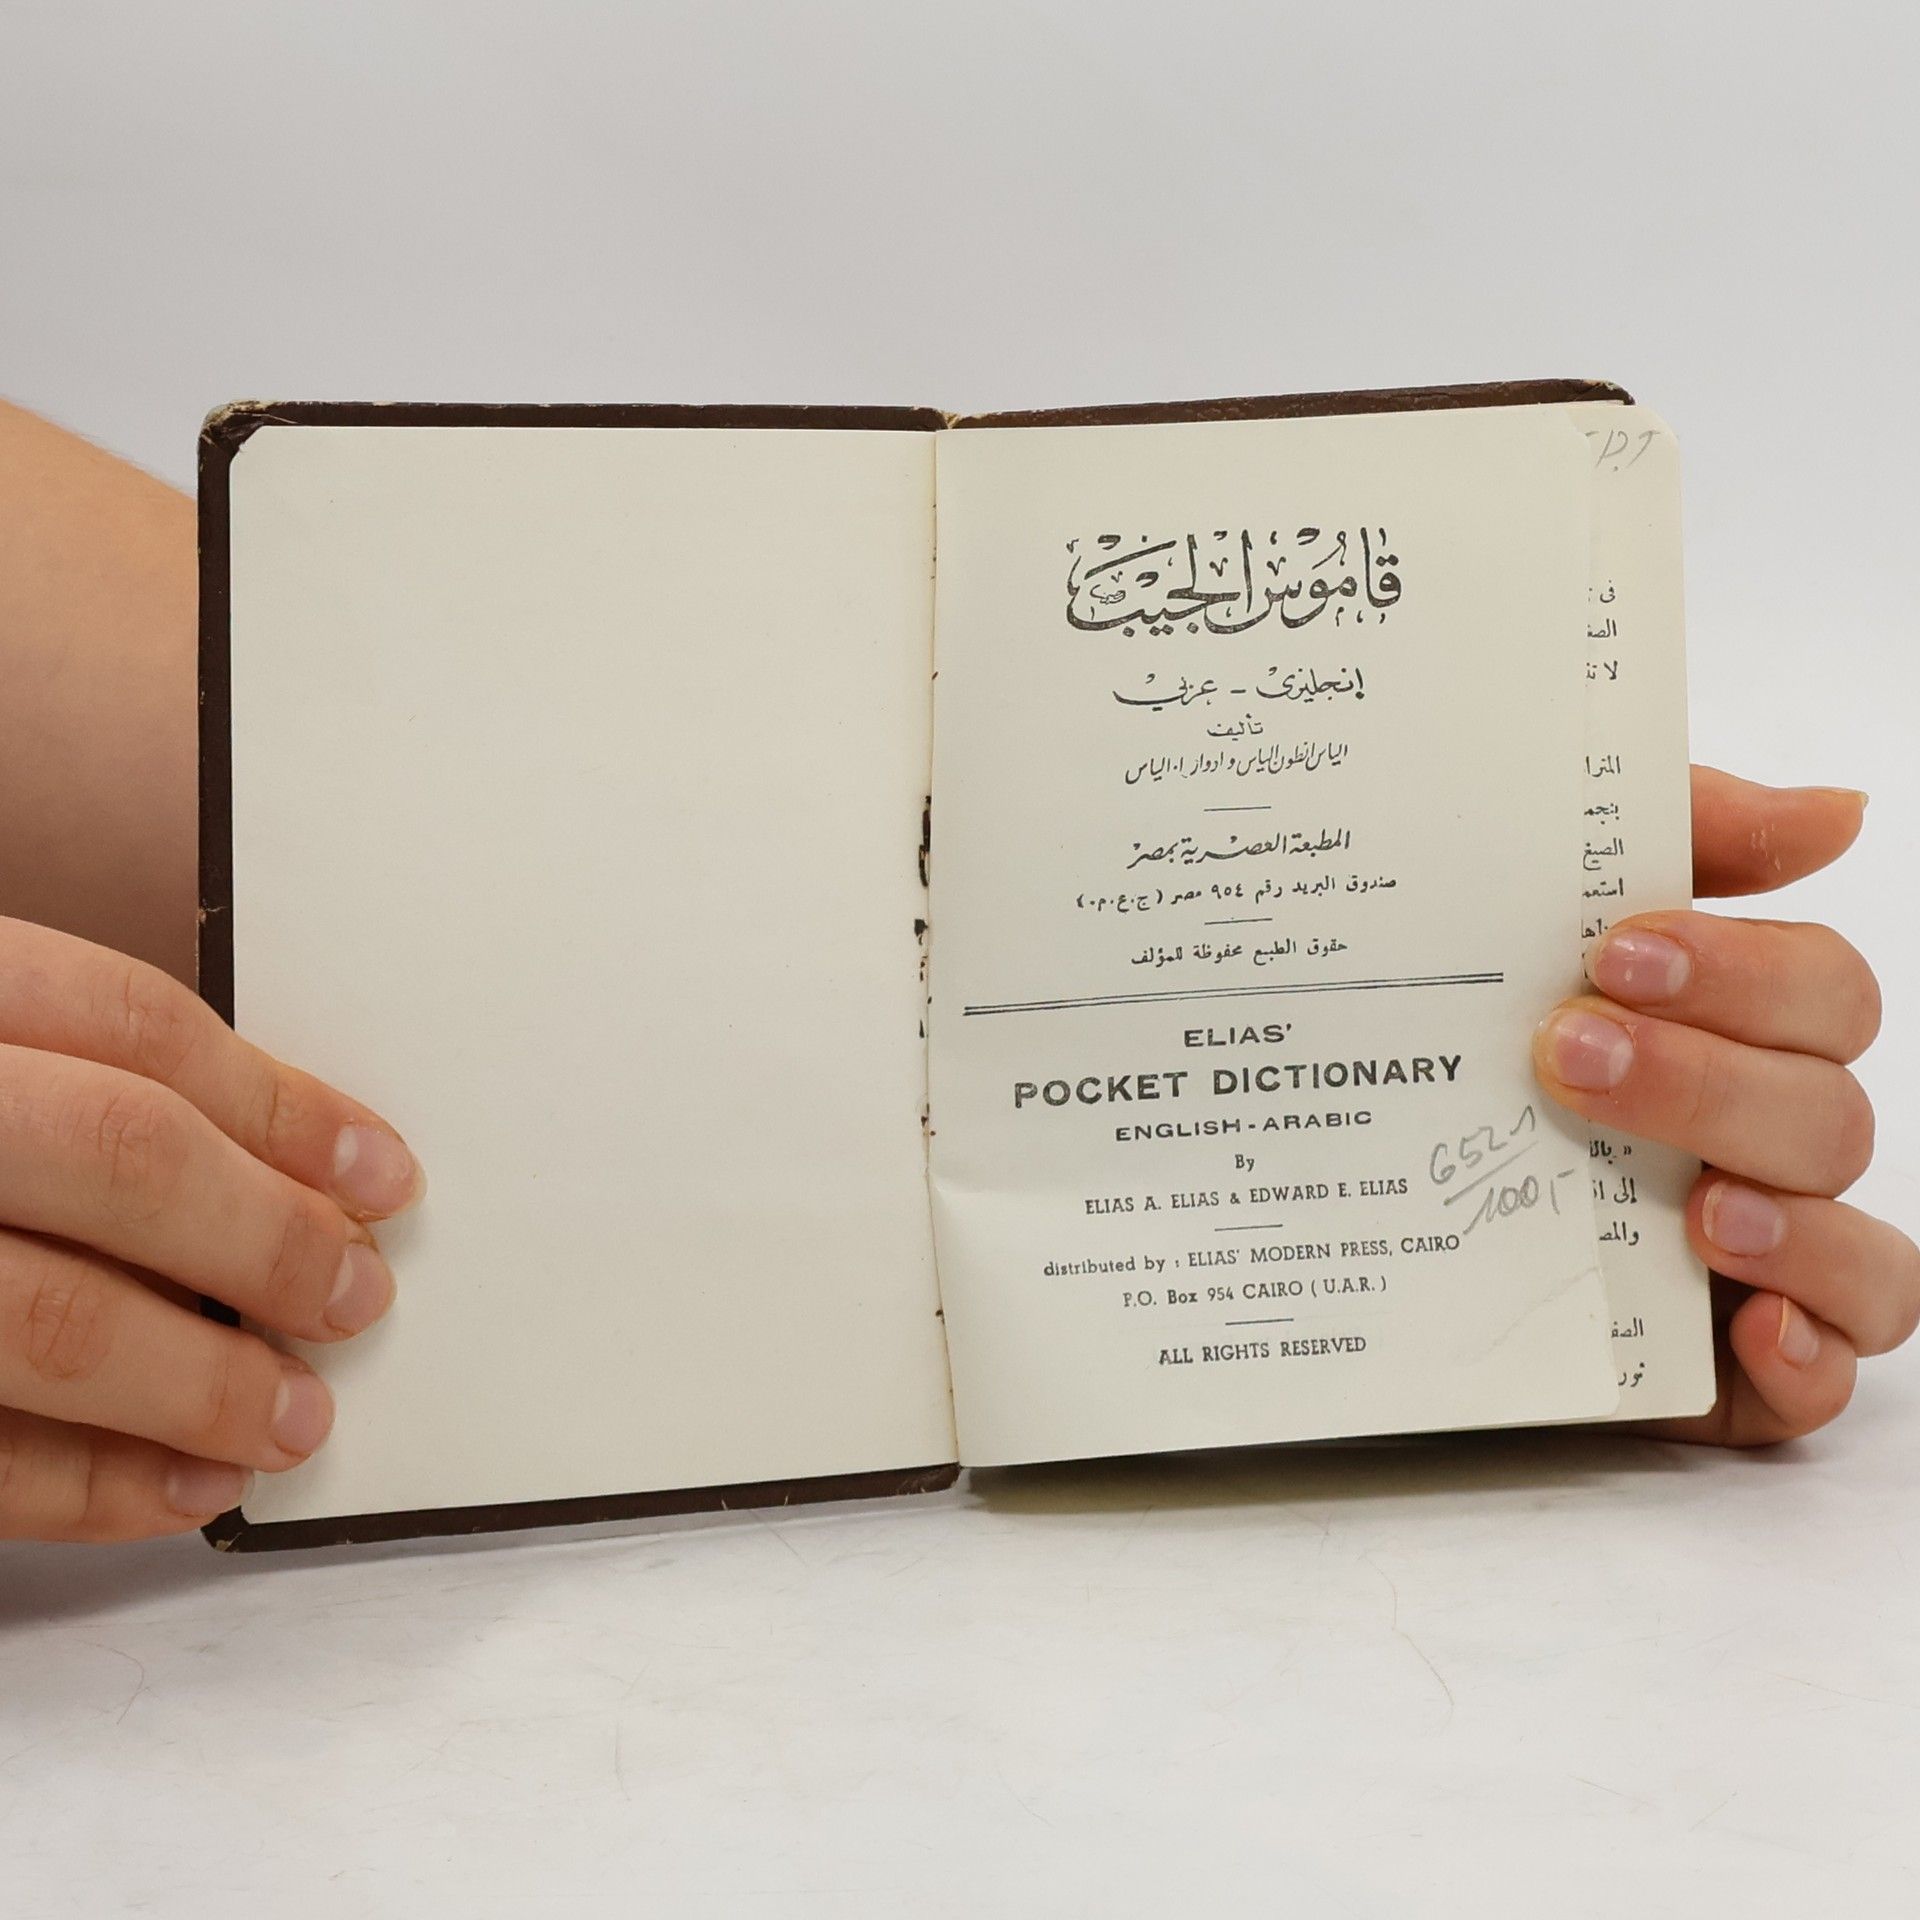 قاموس الجيب
إنجليزى - عربي
تأليف
الياس انطون الياس و ادوار ا. الياس
المطبعة العصرية بمصر
صندوق البريد رقم ٩٥٤ مصر (ج.ع.م.)
حقوق الطبع محفوظة للمؤلف
ELIAS'
POCKET DICTIONARY
ENGLISH-ARABIC
By
ELIAS A. ELIAS & EDWARD E. ELIAS
distributed by : ELIAS' MODERN PRESS, CAIRO
P.O. Box 954 CAIRO ( U.A.R. )
ALL RIGHTS RESERVED
6521
100,-
فى
لا
إلى